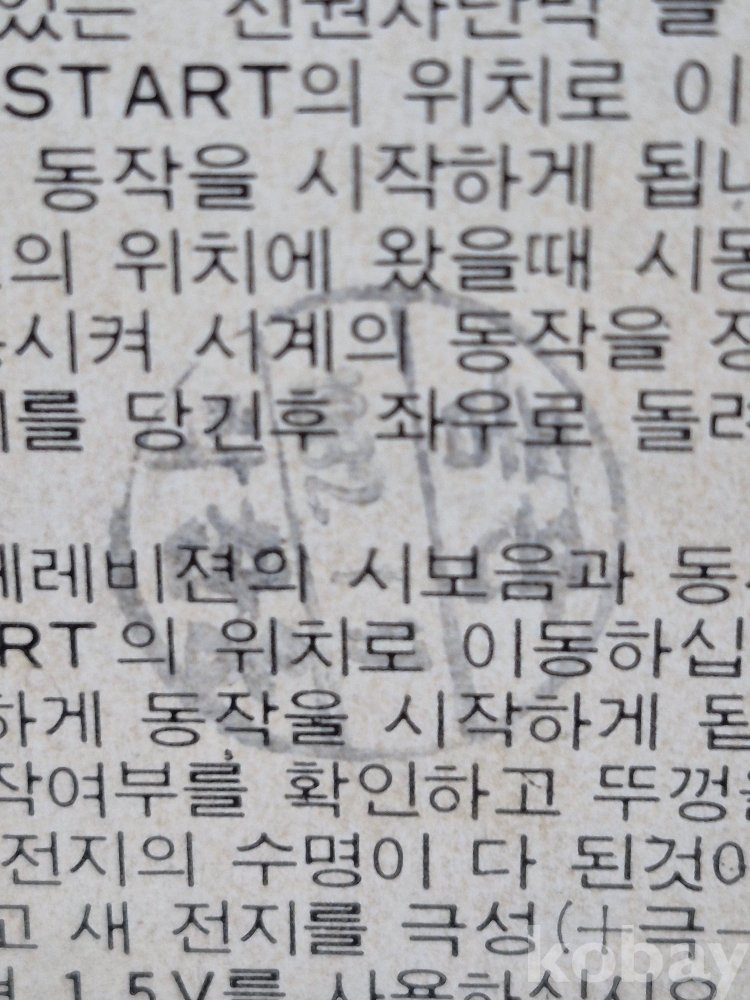 있는 전원차단막 를
START의 위치로 이
동작을 시작하게 됩니
의 위치에 왔을때 시동
시켜 시계의 동작을 정
를 당긴후 좌우로 돌려
레비젼의 시보음과 동
RT의 위치로 이동하십
하게 동작을 시작하게 됩
작여부를 확인하고 뚜껑을
전지의 수명이 다 된것이
고 새 전지를 극성(+극-
1.5V를 사용하십시요
kobay